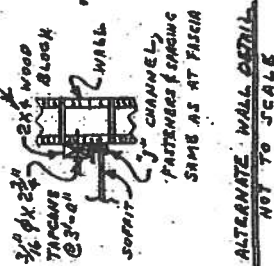 3/16" φ X 2 3/4"
TAPCONS
@ 3'-0"
2X4 WOOD
BLOCK
WALL
SOFFIT
"J" CHANNEL,
FASTENERS & SPACING
SAME AS AT FASCIA
ALTERNATE WALL DETAIL
NOT TO SCALE